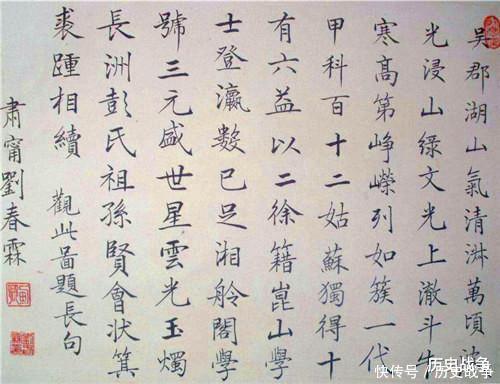 吳郡湖山氣清淋萬頃
光浸山綠文光上澈斗牛
寒高第崢嶸列如簇一代
甲科百十二姑蘇獨得十
有六益以二徐籍崑山學
士登瀛數已足湘舲閣學
號三元盛世星雲光玉燭
長洲彭氏祖孫賢會狀箕
裘踵相續 觀此啚題長句
肅甯劉春霖
历史战争
快传号/历史战争